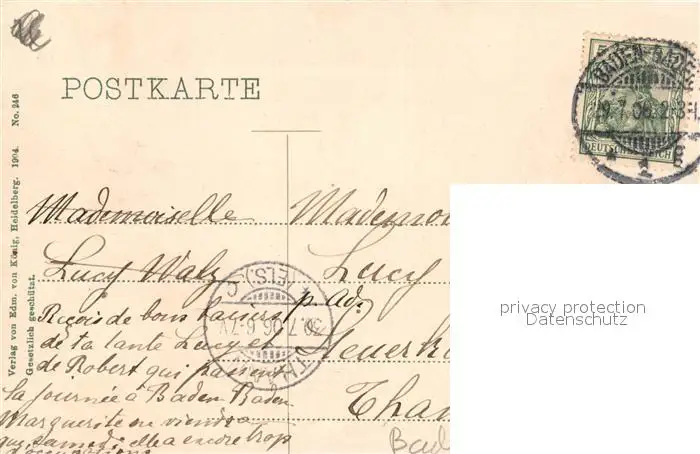 POSTKARTE
BADEN-BADEN
9.7.06. 2-3
1
DEUTSCHES REICH
Verlag von Edm. von König, Heidelberg. 1904. No. 246
Gesetzlich geschützt.
Mademoiselle
Lucy Walz
Reçois de bons baisers
de ta tante Lucy et
de Robert qui passent
la journée à Baden-Baden
Marguerite en viendra
que samedi elle a encore trop
d'occupations
Mademoi
Lucy
p. adr.
Neuerh
Than
Bad
(ELS.)
30.7.06. 6-7 V
privacy protection
Datenschutz